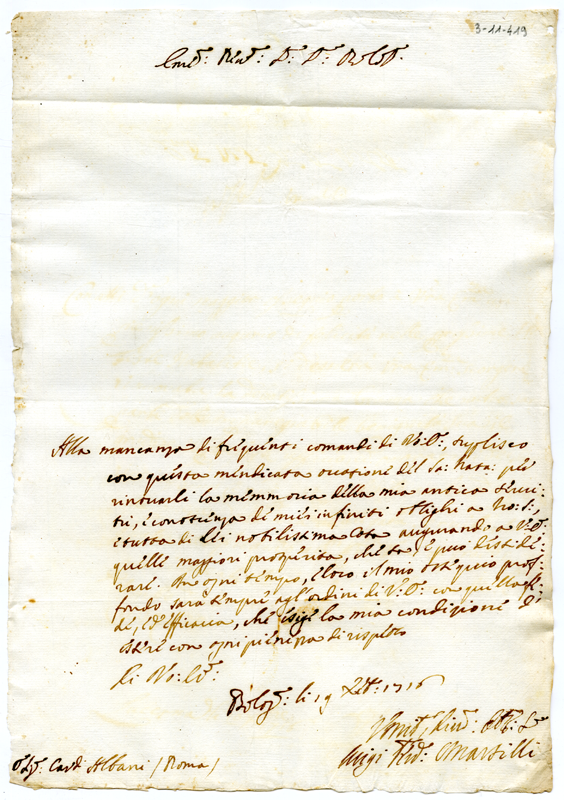 3-11-419
Em.: Rev.: S.: S.: P.
Alla mancanza di frequenti comandi di V.: E.:, supplisco
con questa mendicata occasione del Sa: Nata: per
rinovarli la memmoria della mia antica servi-
tù, e conoscienza de miei infiniti oblighi a
e tutta di Lei nobilissima Casa augurandoli a V.: E.:
quelle maggiori prosperità, che sa, e può deside-
rare. In ogni tempo, e loco il mio ossequio prof-
fondo sarà sempre agl'ordini di V.: E.: con quella fe-
de, ed efficacia, che esige la mia condizione d'
essere con ogni pienezza di rispetto
Di
Bolog.: li 19 Xbre: 1716
Luigi Ferd.: Marsilli
Card: Albani (Roma)